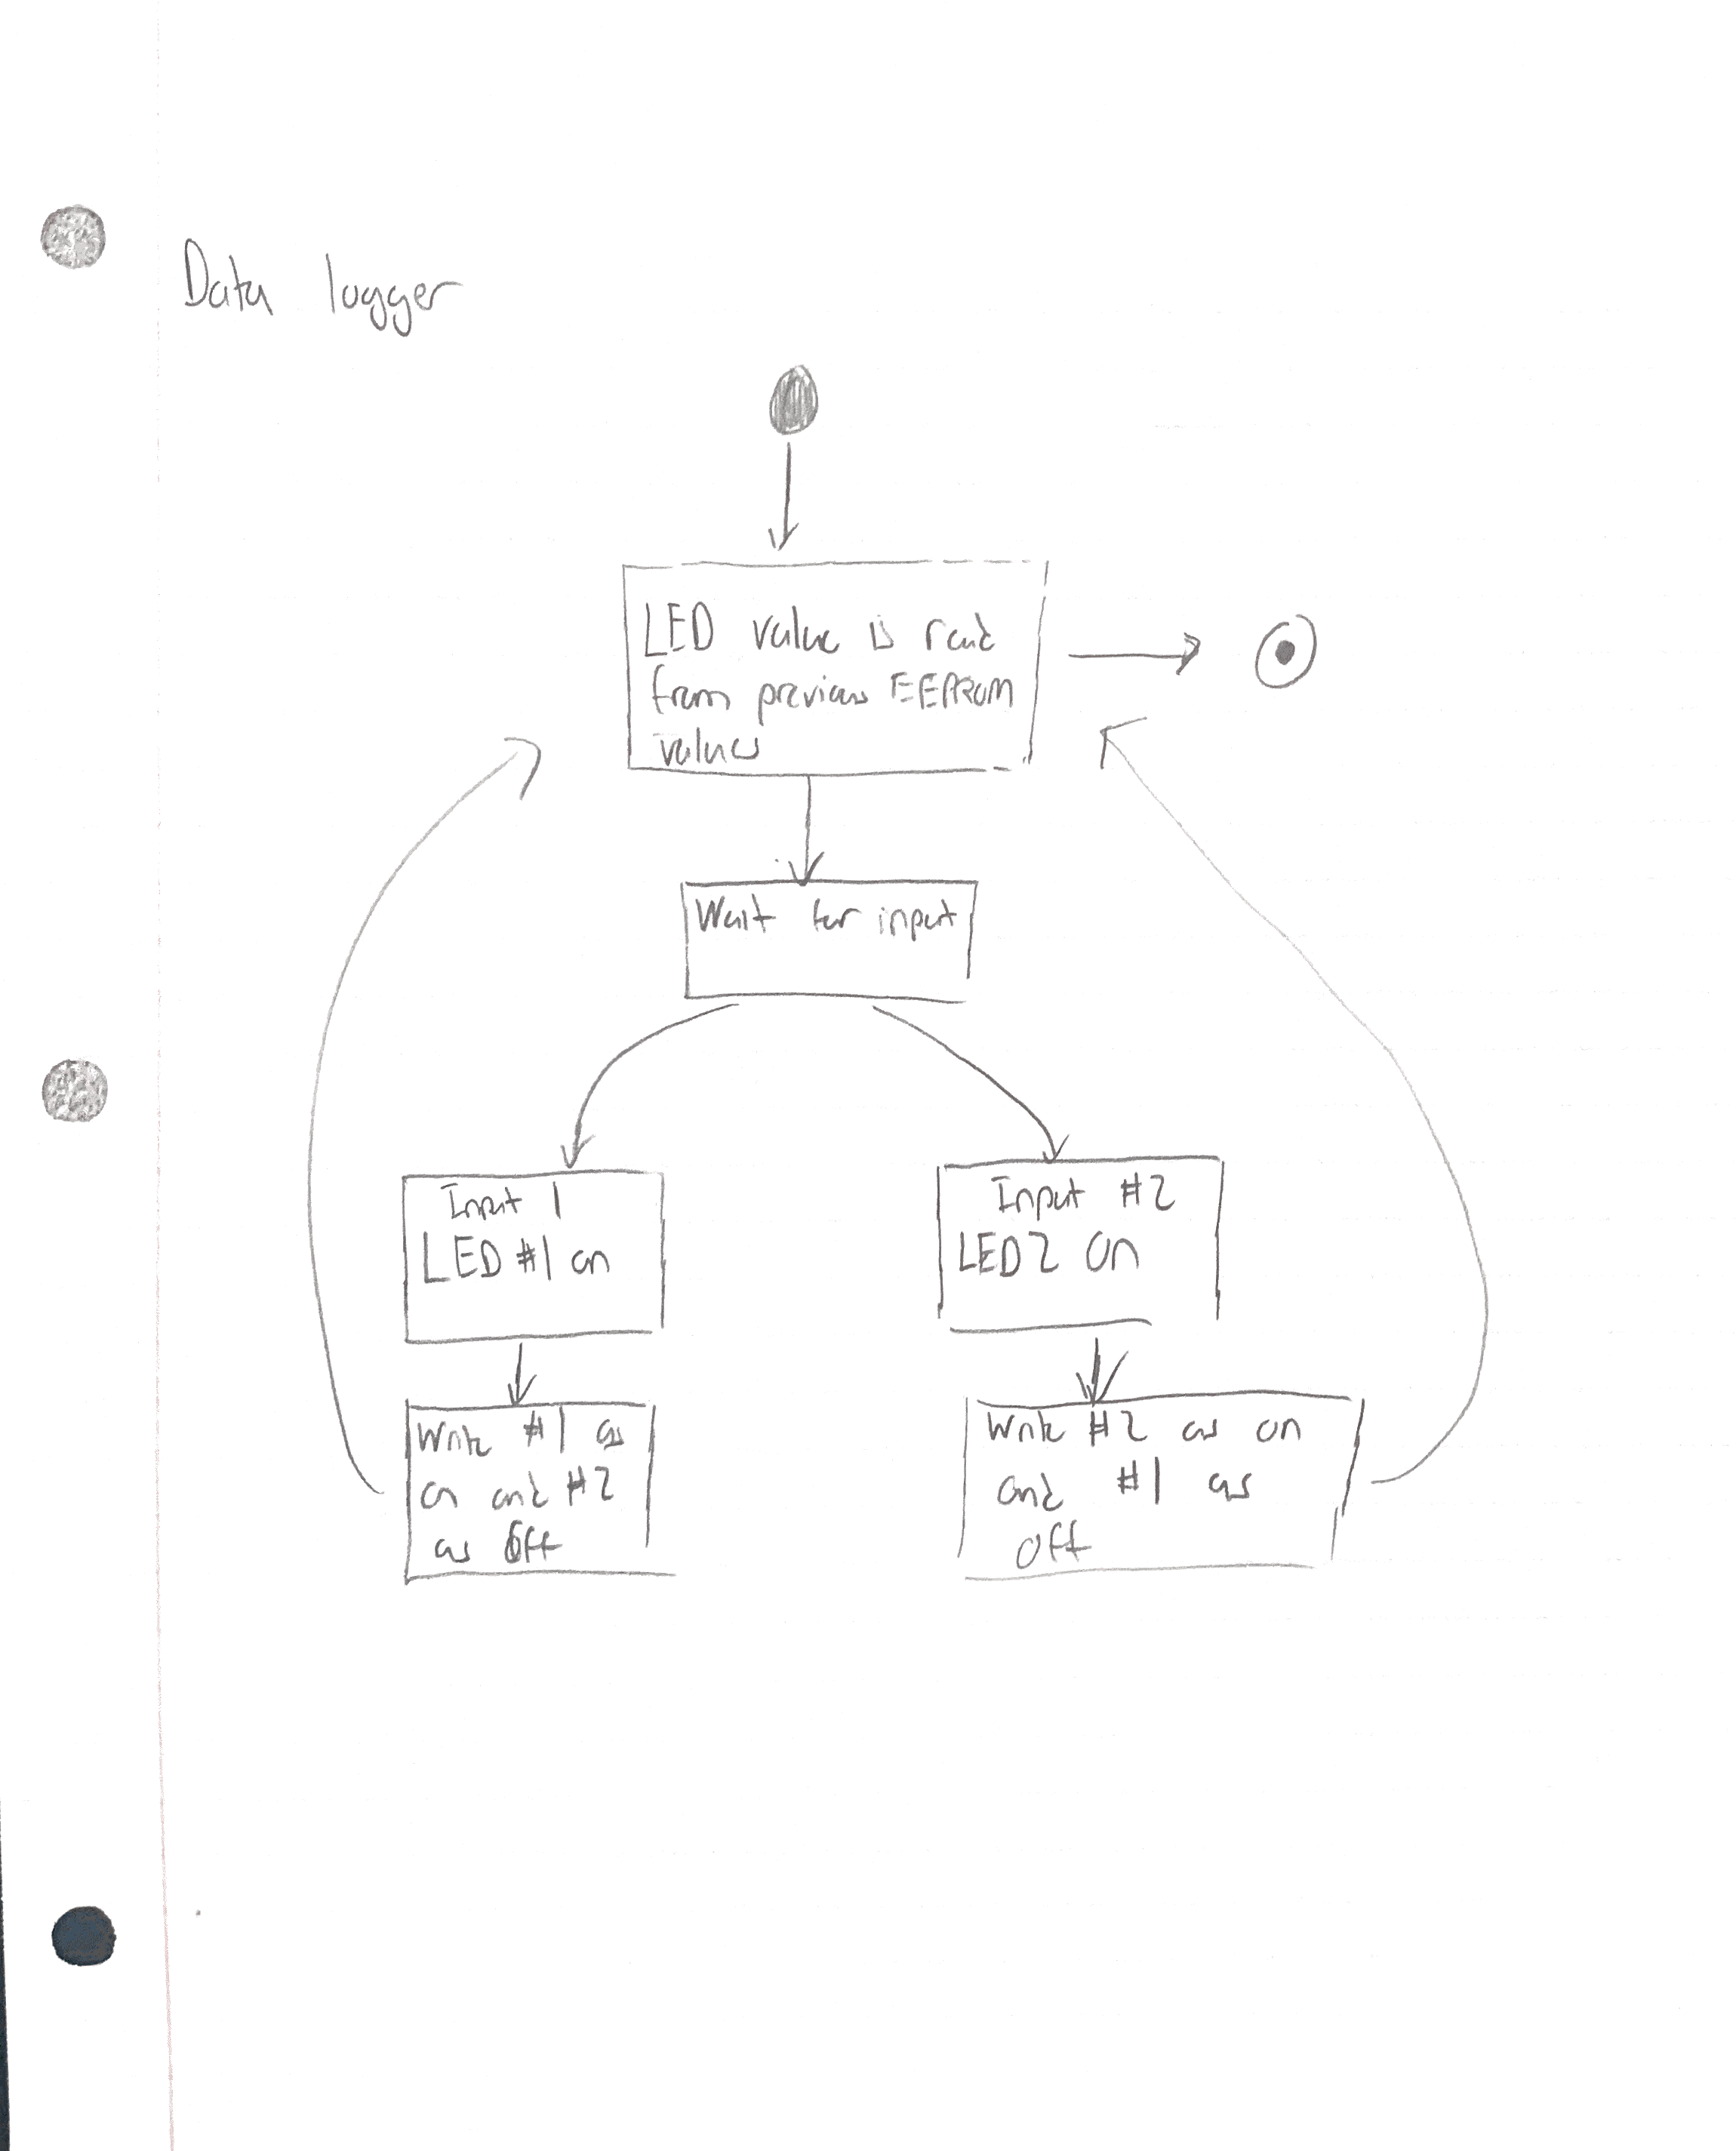 Data logger
LED value is read
from previous EEPROM
values
Wait for input
Input 1
LED #1 on
Input #2
LED2 on
Write #1 as
on and #2
as off
Write #2 as on
and #1 as
off